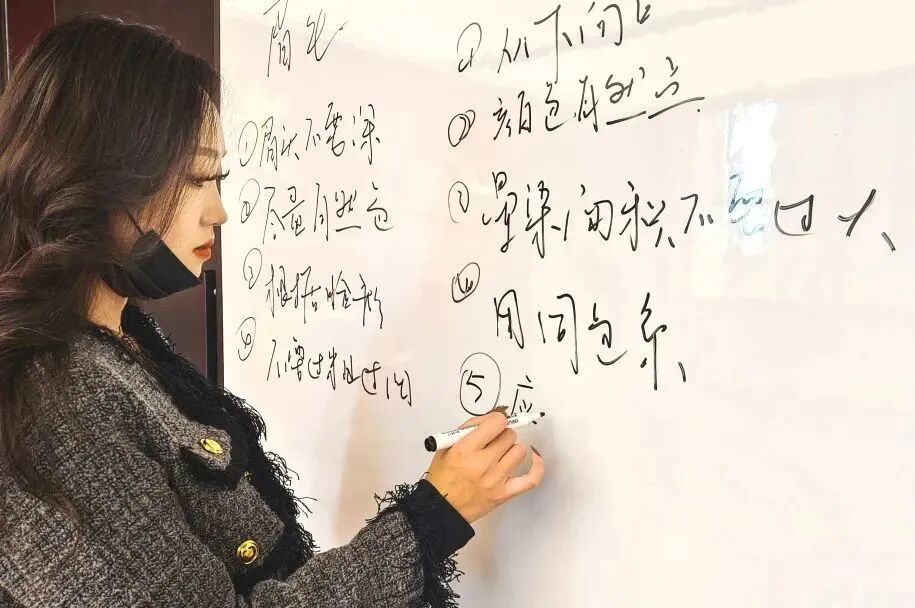 眉毛
① 眉头不要深
② 尽量自然色
③ 根据脸型
④ 不要过粗过细
① 从下向上
② 颜色自然点
③ 晕染面积不要过大
④ 用同色系
⑤ 应